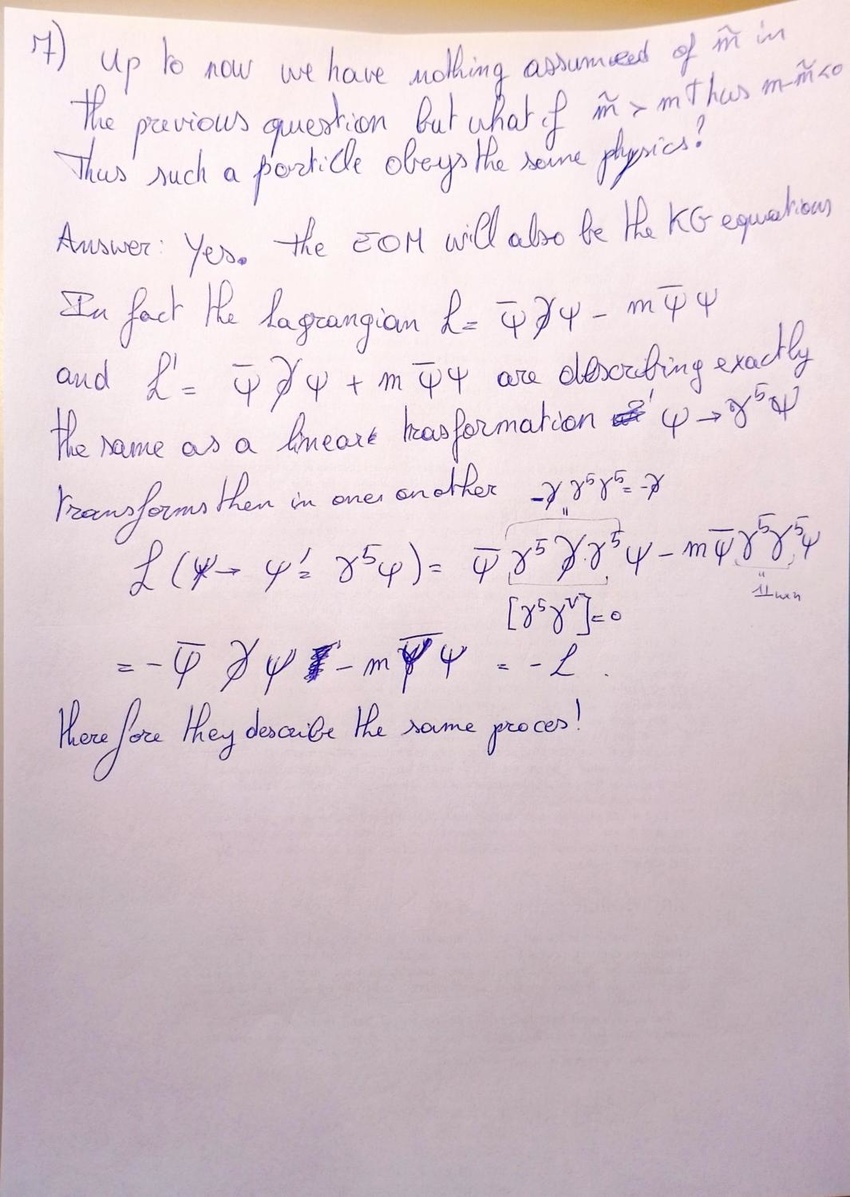 7) Up to now we have nothing assumed of m̃ in
the previous question but what if m̃ > m thus m-m̃<0
Thus such a particle obeys the same physics?
Answer: Yes. the EOM will also be the KG equations
In fact the Lagrangian L = ψ̄ ∂̸ ψ - m ψ̄ ψ
and L' = ψ̄ ∂̸ ψ + m ψ̄ ψ are describing exactly
the same as a linear trasformation ψ → γ⁵ψ
transforms then in ones another -∂̸ γ⁵γ⁵ = -∂̸
L (ψ → ψ' = γ⁵ψ) = ψ̄ γ⁵ ∂̸ γ⁵ ψ - m ψ̄ γ⁵ γ⁵ ψ
[γ⁵ γᵛ] = 0
= - ψ̄ ∂̸ ψ - m ψ̄ ψ = - L .
therefore they describe the same proces!